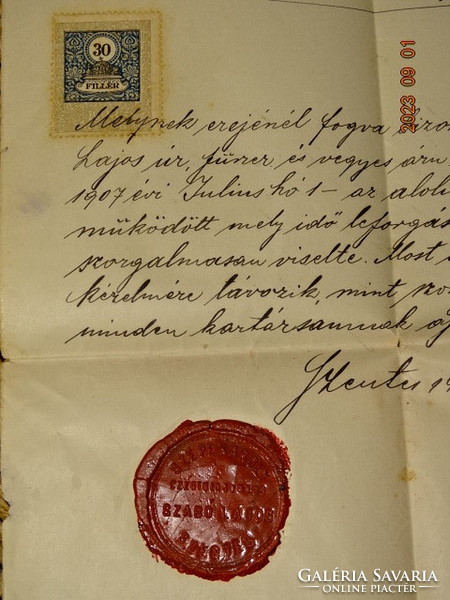 30
FILLÉR
2023 09 01
Melynek erejénél fogva
Lajos úr, fűszer és vegyes áru
1907 évi Julius hó 1- az
működött mely idő leforgás
szorgalmasan viselte. Most
kérelmére távozik, mint
minden kartársamnak
Szentes
SZABO LAJOS
SZENTES
GALÉRIA SAVARIA
ONLINE PIACTÉR